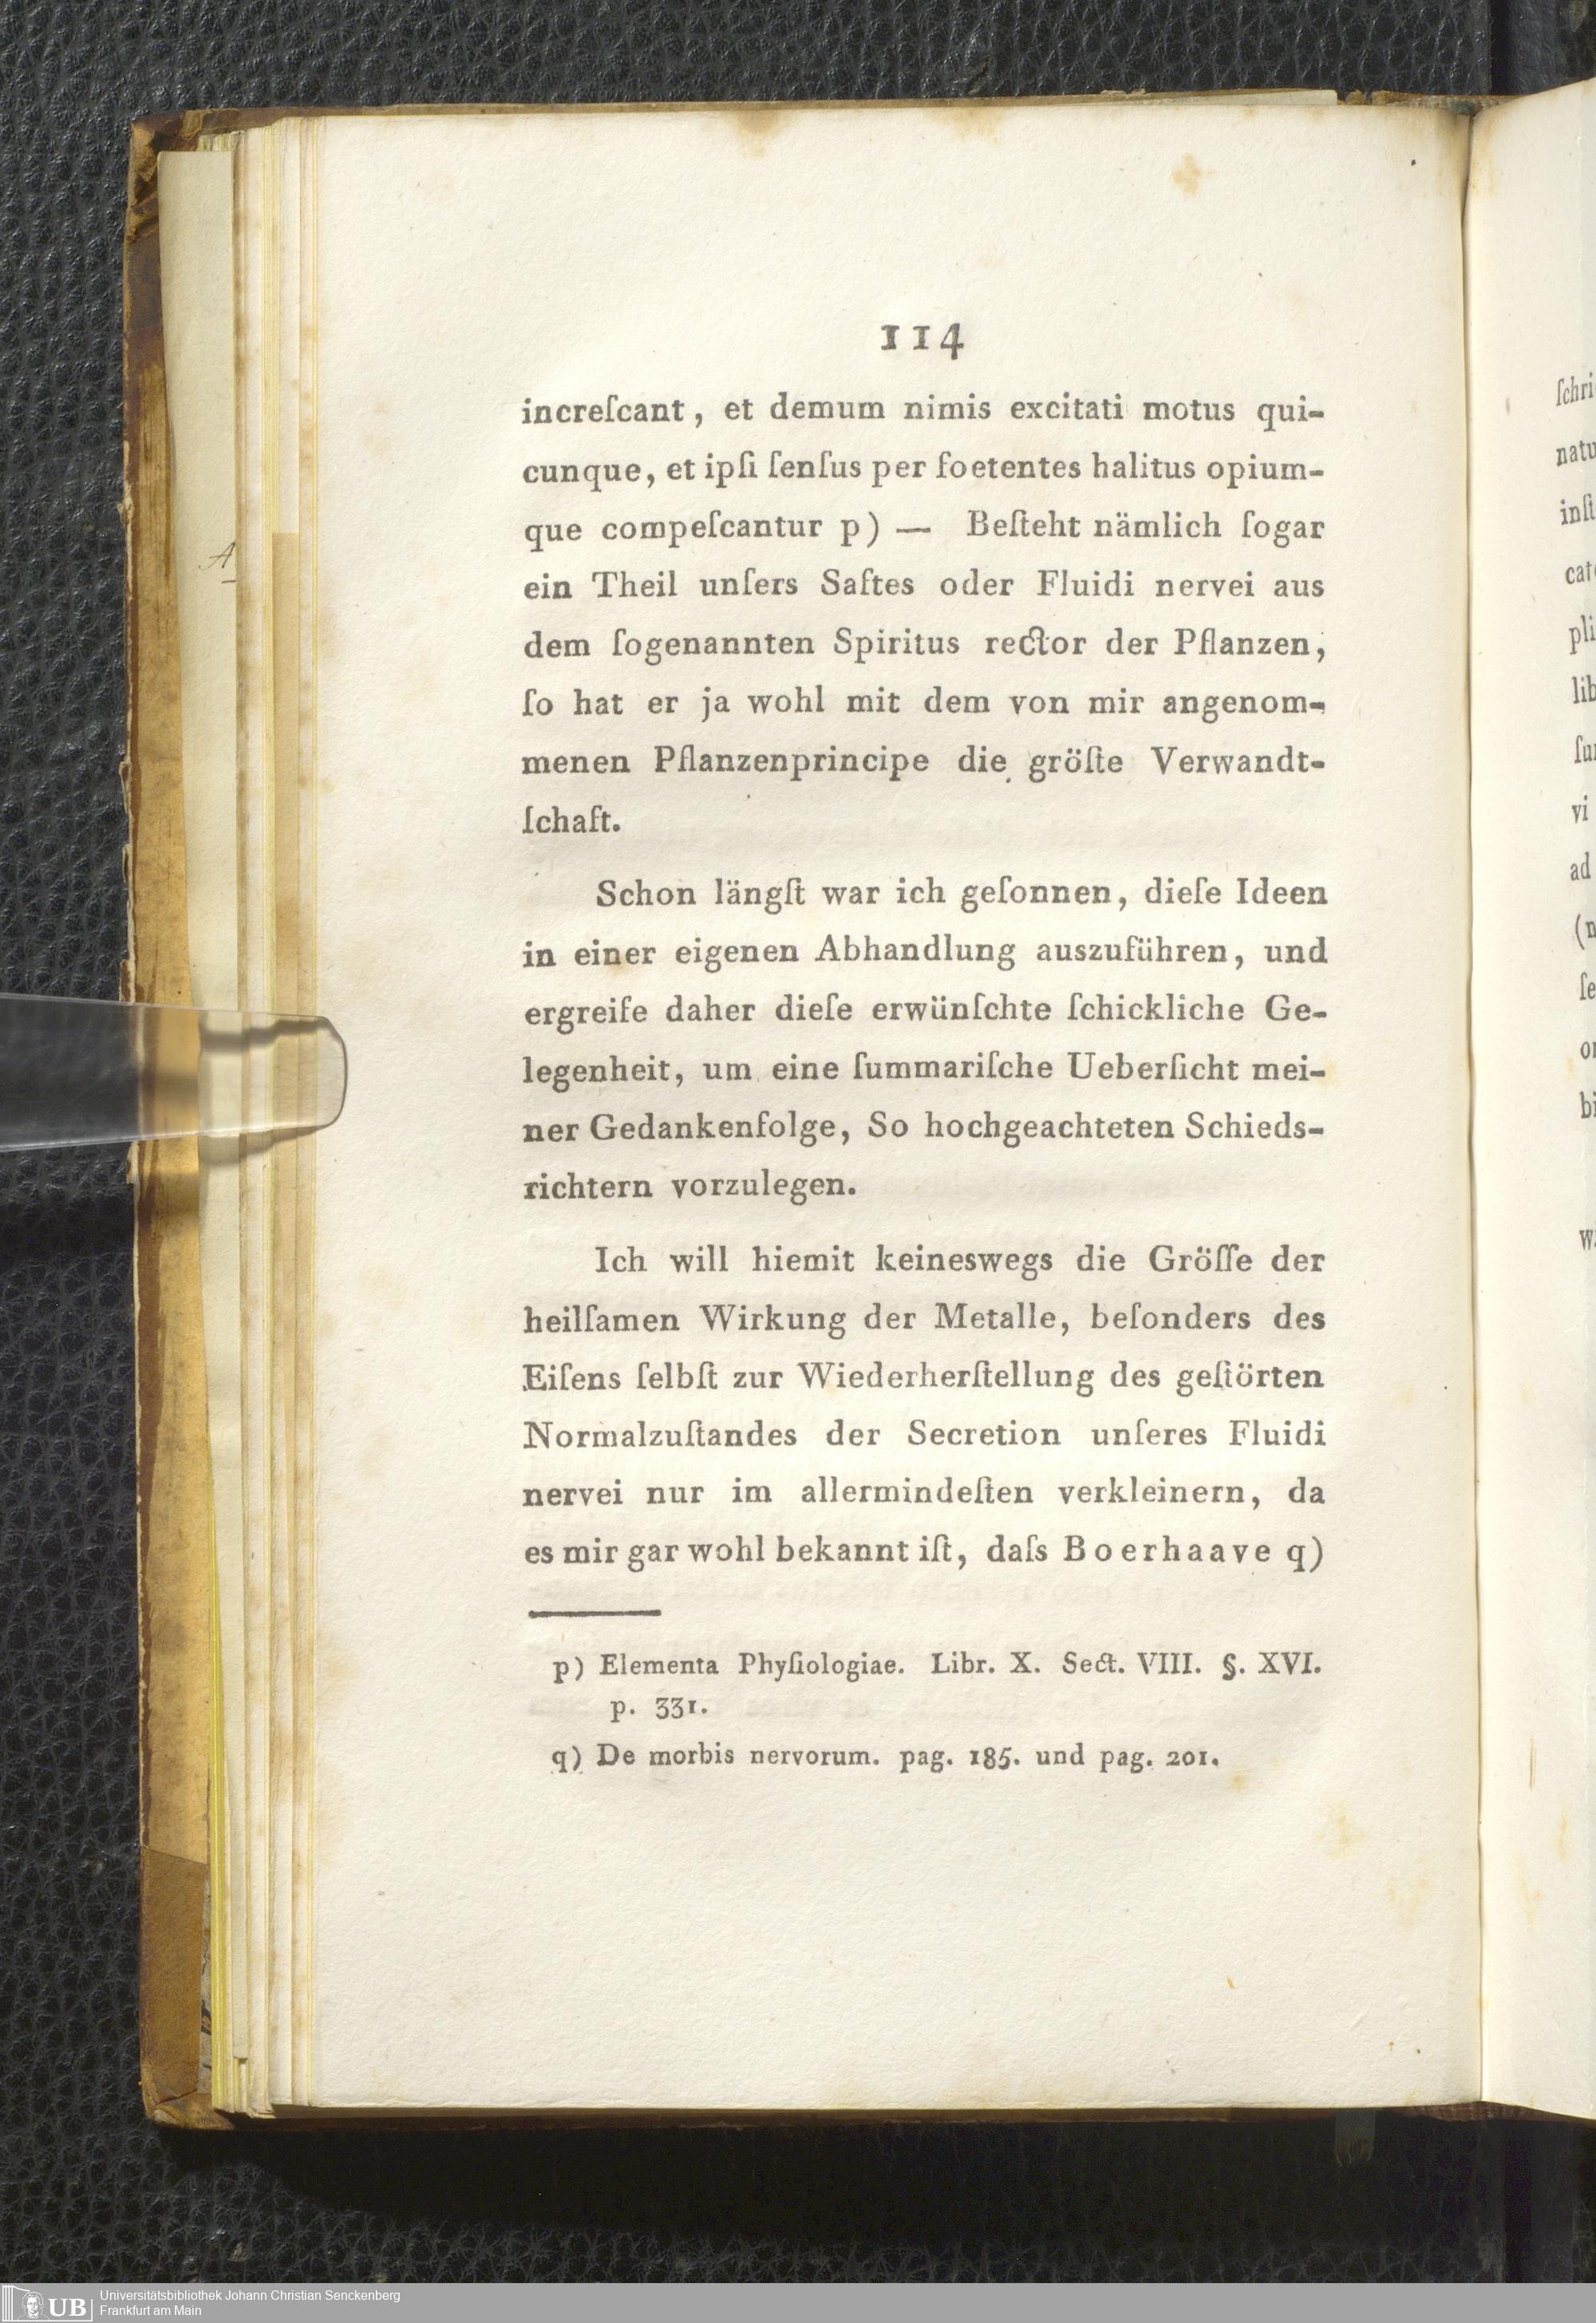 114
increſcant, et demum nimis excitati motus qui-
cunque, et ipſi ſenſus per foetentes halitus opium-
que compeſcantur p) — Beſteht nämlich ſogar
ein Theil unſers Saftes oder Fluidi nervei aus
dem ſogenannten Spiritus rector der Pflanzen,
ſo hat er ja wohl mit dem von mir angenom-
menen Pflanzenprincipe die gröſte Verwandt-
ſchaft.
Schon längſt war ich geſonnen, dieſe Ideen
in einer eigenen Abhandlung auszuführen, und
ergreife daher dieſe erwünſchte ſchickliche Ge-
legenheit, um eine ſummariſche Ueberſicht mei-
ner Gedankenfolge, So hochgeachteten Schieds-
richtern vorzulegen.
Ich will hiemit keineswegs die Gröſſe der
heilſamen Wirkung der Metalle, beſonders des
Eiſens ſelbſt zur Wiederherſtellung des geſtörten
Normalzuſtandes der Secretion unſeres Fluidi
nervei nur im allermindeſten verkleinern, da
es mir gar wohl bekannt iſt, daſs Boerhaave q)
p) Elementa Phyſiologiae. Libr. X. Sect. VIII. §. XVI.
p. 331.
q) De morbis nervorum. pag. 185. und pag. 201.
A
ſchri
natu
inſt
cat
pli
lib
vi
ad
(n
ſe
bi
UB
Universitätsbibliothek Johann Christian Senckenberg
Frankfurt am Main